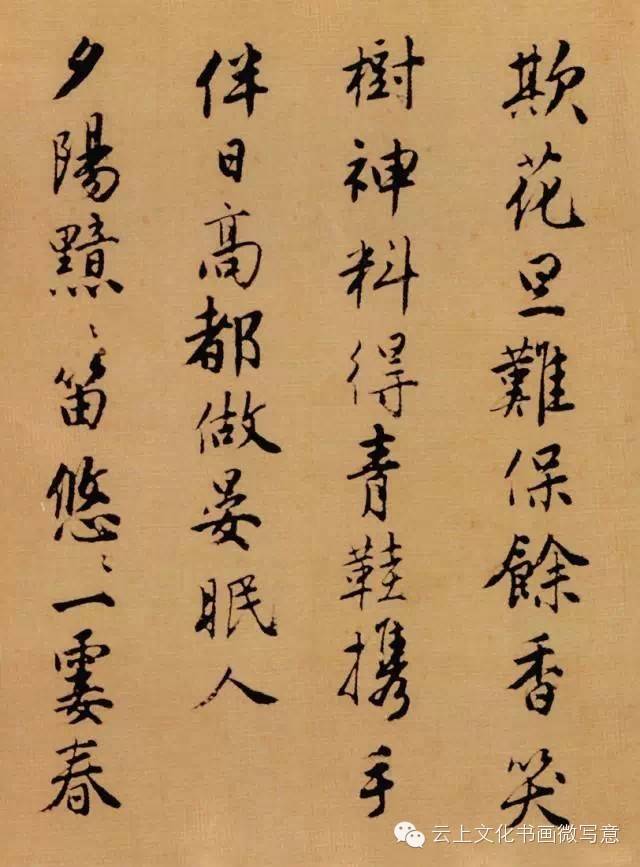 欺花旦難保餘香笑
樹神料得青鞋携手
伴日高都做晏眠人
夕陽黦〻笛悠〻一霎春
云上文化书画微写意